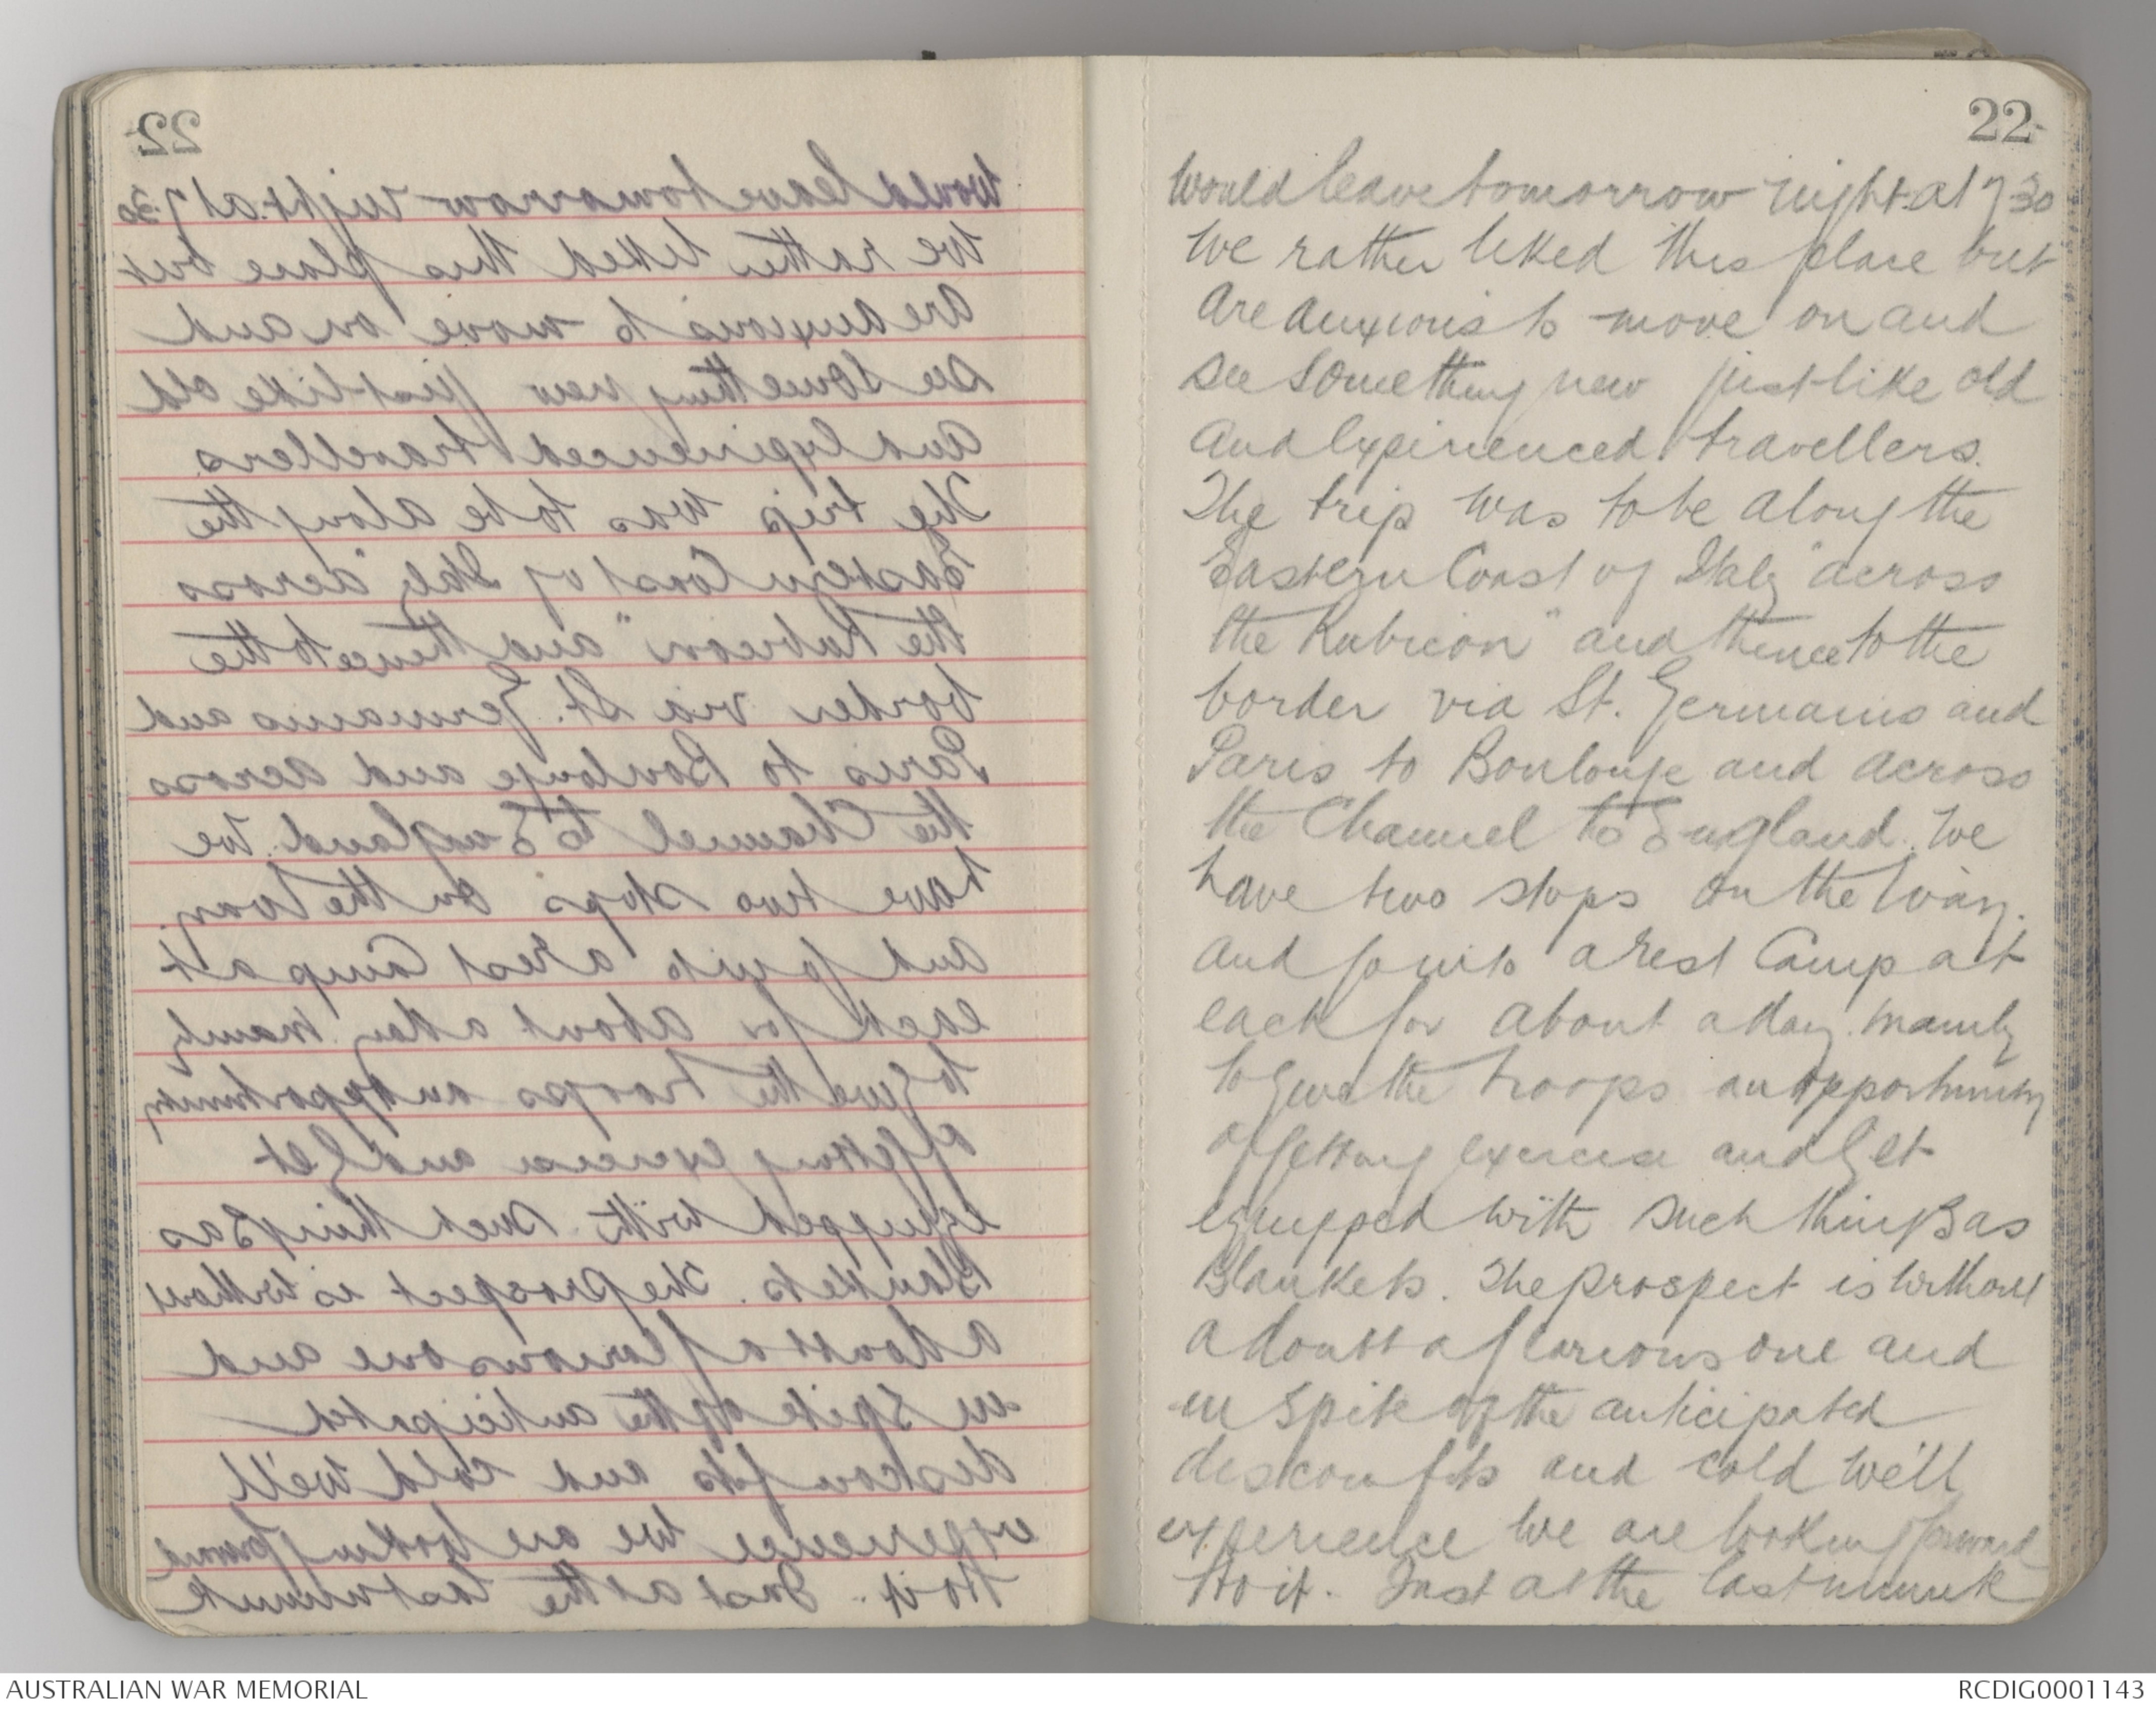 22
would leave tomorrow night at 7.30
We rather liked this place but
are anxious to move on and
see something new just like old
and experienced travellers.
The trip was to be along the
Eastern Coast of Italy "across
the Rubicon" and thence to the
border via St. Germains and
Paris to Boulonge and across
the Channel to England. We
have two stops on the way.
and go into a rest Camp at
each for about a day. mainly
to give the troops an opportunity
of getting exercise and get
equipped with such things as
Blankets. The prospect is without
a doubt a glorious one and
in spite of the anticipated
discomfits and cold we'll
experience we are looking forward
to it. Just at the last minute
AUSTRALIAN WAR MEMORIAL
RCDIG0001143